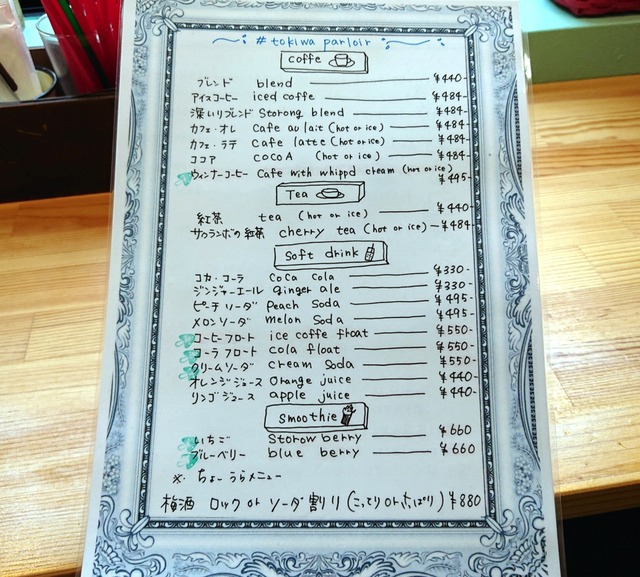 #tokiwa parloir
coffe
ブレンド blend ¥440-
アイスコーヒー iced coffe ¥484-
深いりブレンド Storong blend ¥484-
カフェ・オレ Cafe au lait (hot or ice) ¥484-
カフェ・ラテ Cafe latte (hot or ice) ¥484-
ココア COCOA (hot or ice) ¥484-
ウィンナーコーヒー Cafe with whippd cream (hot or ice) ¥495-
Tea
紅茶 tea (hot or ice) ¥440-
サクランボの紅茶 cherry tea (hot or ice) ¥484-
Soft drink
コカ・コーラ Coca cola ¥330-
ジンジャーエール ginger ale ¥330-
ピーチソーダ peach Soda ¥495-
メロンソーダ melon Soda ¥495-
コーヒーフロート ice coffe float ¥550-
コーラフロート cola float ¥550-
クリームソーダ cream Soda ¥550-
オレンジジュース Orange juice ¥440-
リンゴジュース apple juice ¥440-
Smoothie
いちご Storow berry ¥660
ブルーベリー blue berry ¥660
※ ちょーうらメニュー
梅酒 ロック or ソーダ割り (こってり or さっぱり) ¥880